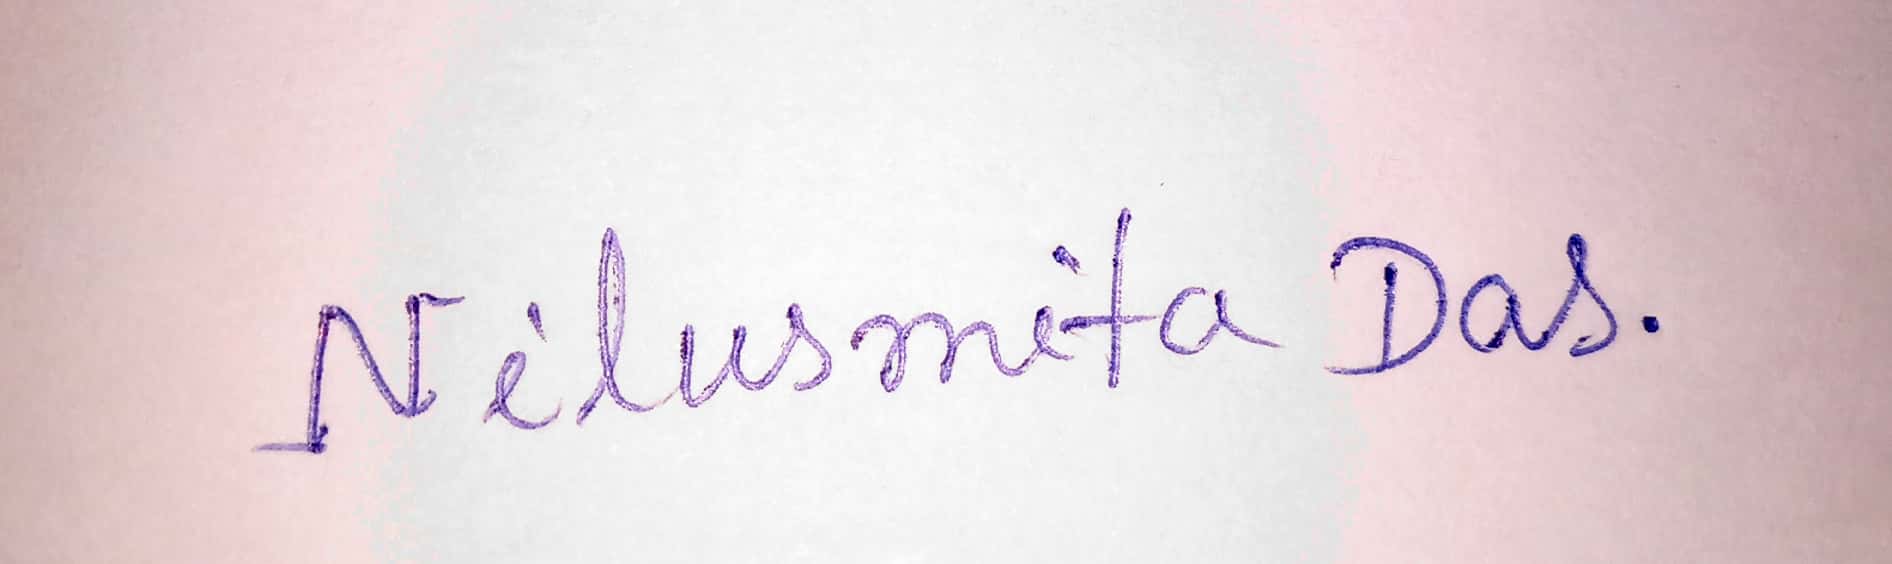 Nilusmita Das.